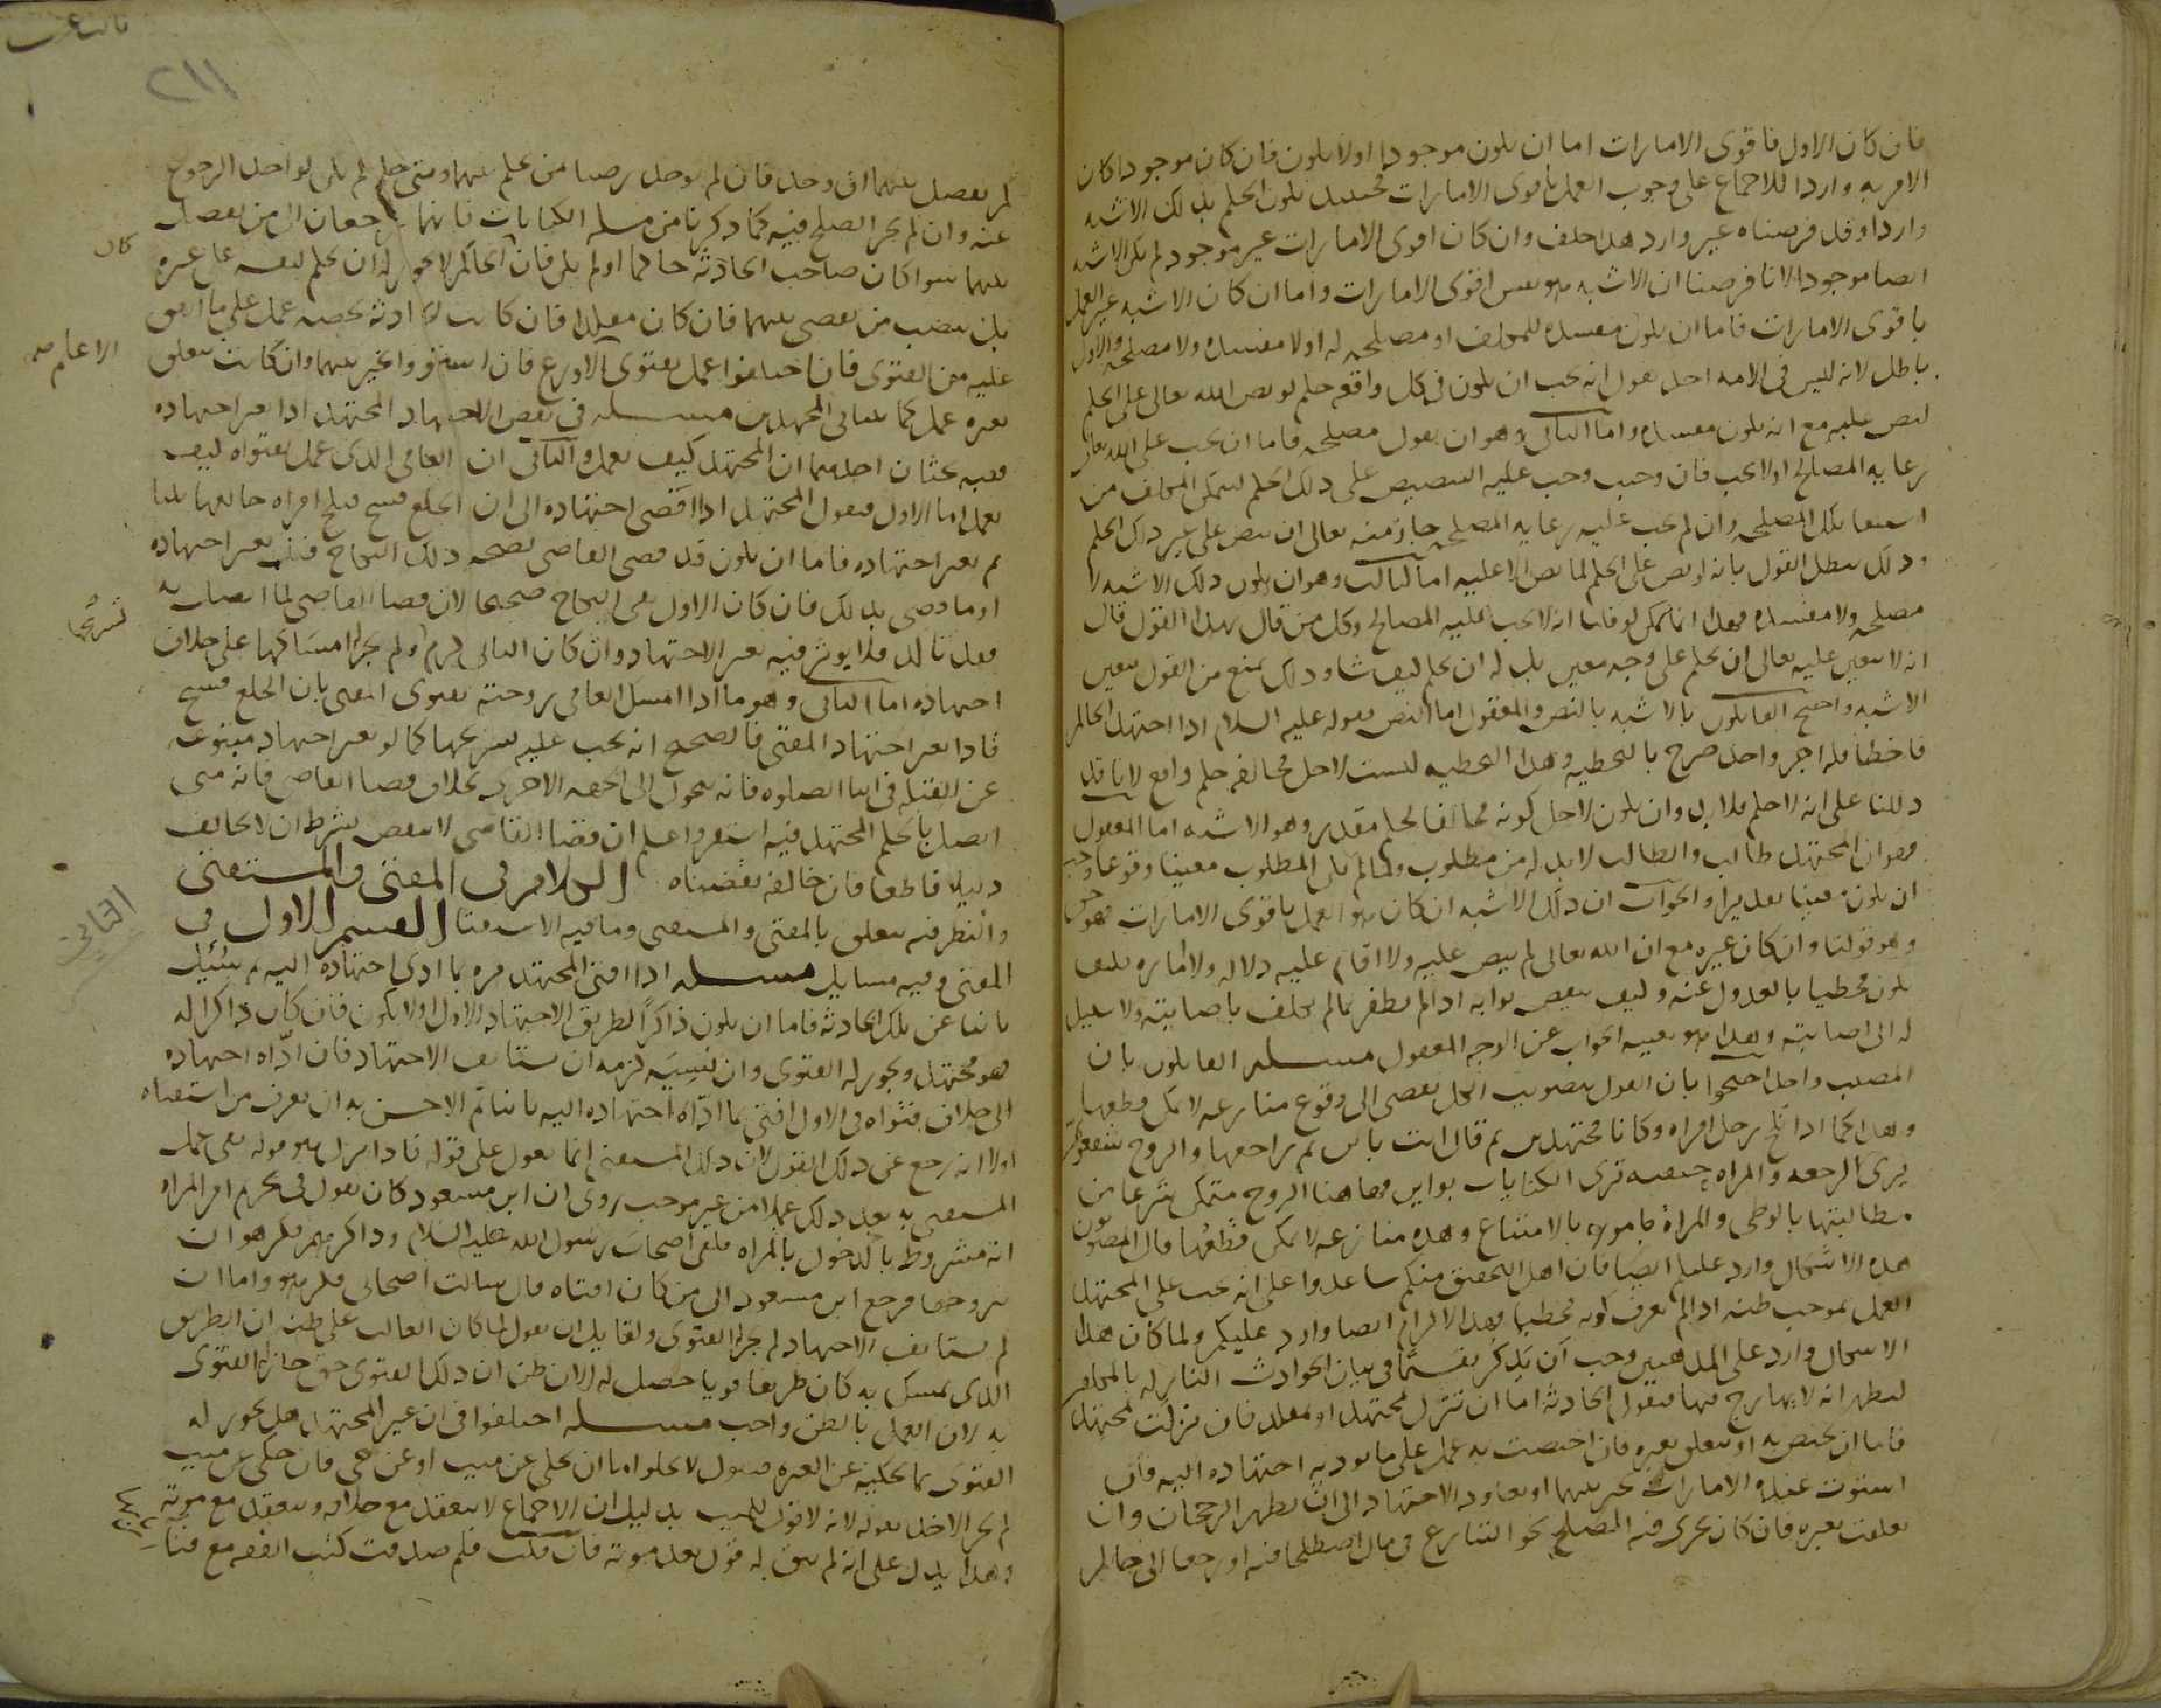 فان كان الاول فاقوى الامارات اما ان يكون موجودا اولا يكون فان كان موجودا كان
الامر به واردا للاجماع على وجوب العمل باقوى الامارات فحينئذ يكون الحكم بذلك الاشبه
واردا وقد فرضناه غير وارد هذا خلف وان كان اقوى الامارات غير موجود لم يكن الاشبه
ايضا موجودا لانا فرضنا ان الاشبه هو نفس اقوى الامارات واما ان كان الاشبه غير العمل
باقوى الامارات فاما ان يكون مفسدة للمكلف او مصلحة له اولا مفسدة ولا مصلحة والاول
باطل لانه ليس فى الامة احد يقول انه يجب ان يكون فى كل واقعة حكم لو نص الله تعالى على الحكم
لنص عليه مع انه يكون مفسدة واما الثانى وهو ان يقول مصلحة فاما ان يجب على الله تعالى
رعاية المصالح اولا يجب فان وجب وجب عليه التنصيص على ذلك الحكم ليتمكن المكلف من
استيفا تلك المصلحة وان لم يجب عليه رعاية المصلحة جاز منه تعالى ان ينص على غير ذلك الحكم
وذلك يبطل القول بانه لو نص على الحكم لما نص الا عليه اما الثالث وهو ان يكون ذلك الاشبه لا
مصلحة ولا مفسدة فهذا انما يمكن لو قلنا انه لا يجب عليه المصالح وكل من قال بهذا القول قال
انه لا يتعين عليه تعالى ان يحكم على وجه معين بل له ان يحكم كيف شا وذلك يمنع من القول بتعين
الاشبه واحتج القايلون بالاشبه بالنص والمعقول اما النص فقوله عليه السلام اذا اجتهد الحاكم
فاخطا فله اجر واحد صرح بالتخطية وهذا التخطية ليست لاجل مخالفة حكم واقع لانا قد
دللنا على انه لا حكم فلا بد وان يكون لاجل كونه مخالفا لحكم مقدر وهو الاشبه اما المعقول
فهو ان المجتهد طالب والطالب لا بد له من مطلوب ولما لم يكن المطلوب معينا وقوعا وجب
ان يكون معينا تقديرا والجواب ان ذلك الاشبه ان كان هو العمل باقوى الامارات فهو حق
وهو قولنا وان كان غيره مع ان الله تعالى لم ينص عليه ولا اقام عليه دلالة ولا امارة فكيف
يكون مخطيا بالعدول عنه وكيف ينقص ثوابه اذا لم يظفر بما لم يكلف باصابته ولا سبيل
له الى اصابته وهذا هو بعينه الجواب عن الوجه المعقول مسلة القايلون بان
المصيب واحد احتجوا بان القول بتصويب الكل يفضى الى وقوع منازعة لا يمكن قطعها
وهذا كما اذا نكح رجل امراة وكانا مجتهدين ثم قال انت باين ثم راجعها والزوج شفعوى
يرى الرجعة والمراة حنفية ترى الكنايات بواين فهاهنا الزوج متمكن شرعا من
مطالبتها بالوطى والمراة مامورة بالامتناع وهذه منازعة لا يمكن قطعها قال المصوبون
هذه الاشكال وارد عليكم ايضا فان اهل التحقيق منكم ساعدوا على انه يجب على المجتهد
العمل بموجب ظنه اذا لم يعرف كونه مخطيا فهذا الالزام ايضا وارد عليكم ولما كان هذا
الاشكال واردا على المذهبين وجب ان يذكر تقسيما فى بيان الحوادث النازلة بالمكلفين
ليظهر انه لا يهارج فيها فنقول الحادثة اما ان تنزل لمجتهد او لمقلد فان نزلت لمجتهد
فاما ان يختص به او يتعلق بغيره فان اختصت به عمل على ما يوديه اجتهاده اليه فان
استوت عنده الامارات تخير بينهما او يعاود الاجتهاد الى ان يظهر الرجحان وان
تعلقت بغيره فان كان يجرى فيه الصلح نحو التنازع فى مال اصطلحا فيه او رجعا الى حاكم
٢١١
لم يفصل بينهما ان وجد فان لم يوجد رضيا من يحكم بينهما ومتى حكم لم يكن لواحد الرجوع
عنه وان لم يجر الصلح فيه كما ذكرنا من مسلة الكنايات فانهما يرجعان الى من يفصل
بينهما سوا كان صاحب الحادثة حاكما اولم يكن فان الحاكم لا يجوز له ان يحكم لنفسه على غيره
كان
بل ينصب من يقضى بينهما فان كان مقلدا فان كانت الحادثة تخصه عمل على ما اتفق
عليه من الفتوى فان اختلفوا عمل بفتوى الاورع فان استووا تخير بينهما وان كانت تتعلق
الاعلم صح
بغيره عمل كما يتعلق المجتهدين مسلة فى نقض الاجتهاد المجتهد اذا تغير اجتهاده
ففيه بحثان احدهما ان المجتهد كيف يعمل والثانى ان العامى الذى عمل بفتواه كيف
يعمل اما الاول فنقول المجتهد اذا افضى اجتهاده الى ان الخلع فسخ فنكح امراة خالعها ثلثا
ثم تغير اجتهاده فاما ان يكون قد قضى القاضى بصحة ذلك النكاح قبل تغير اجتهاده
او ما قضى بذلك فان كان الاول بقى النكاح صحيحا لان قضا القاضى لما اتصل به
فقد تاكد فلا يوثر فيه تغير الاجتهاد وان كان الثانى لزمه ولم يجز امساكها على خلاف
تسريحها
اجتهاده اما الثانى وهو ما اذا امسك العامى زوجته بفتوى المفتى بان الخلع فسخ
فاذا تغير اجتهاد المفتى فالصحيح انه يجب عليه تسريحها كما لو تغير اجتهاد متبوعه
عن القبلة فى اثنا الصلوة فانه يتحول الى الجهة الاخرى بخلاف قضا القاضى فانه متى
اتصل بالحكم المجتهد فيه استقر واعلم ان قضا القاضى لا ينقض بشرط ان لا يخالف
دليلا قاطعا فان خالفه نقضناه الكلام فى المفتى والمستفتى
والنظر فيه يتعلق بالمفتى والمستفتى وما فيه الاستفتا القسم الاول فى
المفتى وفيه مسايل مسلة اذا افتى المجتهد مرة بما ادى اجتهاده اليه ثم سئيل
ثانيا عن تلك الحادثة فاما ان يكون ذاكرا لطريق الاجتهاد الاول اولا يكون فان كان ذاكرا له
فهو مجتهد ويجوز له الفتوى وان نسيه لزمه ان يستانف الاجتهاد فان اداه اجتهاده
الى خلاف فتواه فى الاول افتى بما اداه اجتهاده اليه ثانيا ثم الاحسن به ان يعرف من استفتاه
اولا انه رجع عن ذلك القول لان ذلك المستفتى انما يعول على قوله فاذا ترك هو قوله بقى عمل
المستفتى به بعد ذلك عملا من غير موجب روى ان ابن مسعود كان يقول فى تحريم ام المراة
انه مشروط بالدخول بالمراة فلقى اصحاب رسول الله عليه السلام وذاكرهم فكرهوا ان
يتزوجها فرجع ابن مسعود الى من كان افتاه قال سالت اصحابى فكرهوا واما ان
لم يستانف الاجتهاد لم يجز الفتوى ولقايل ان يقول لما كان الغالب على ظنه ان الطريق
الذى تمسك به كان طريقا قويا حصل له الان ظن ان ذلك الفتوى حق جاز له الفتوى
به لان العمل بالظن واجب مسلة اختلفوا فى ان غير المجتهد هل يجوز له
الفتوى بما يحكيه عن الغير فنقول لا يخلوا اما ان يحكى عن ميت او عن حى فان حكى عن ميت
لم يجز الاخذ بقوله لانه لا قول للميت بدليل ان الاجماع لا ينعقد مع خلافه وينعقد مع موته
وهذا يدل على انه لم يبق له قول بعد موته فان قلت فلم صنفت كتب الفقه مع فنا